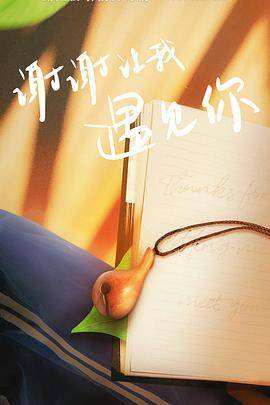 谢谢让我
遇见你
Thanks for
meet you